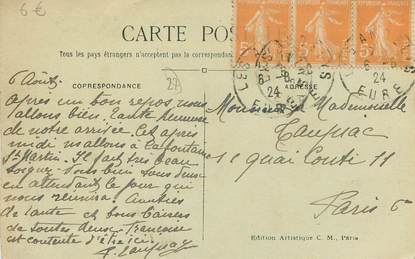 6 €
CARTE POS
Tous les pays étrangers n'acceptent pas la correspondan
CORRESPONDANCE
ADRESSE
27
6 Août
Après un bon repos nous
allons bien. Tante heureuse
de notre arrivée. Cet après
midi nous allons à la fontaine
St Martin. Il fait très beau
tous bien
en attendant le jour qui
nous réunira. Amitiés
de tante et bons baisers
de toutes deux. Françoise
et contente d'être ici.
LES
6-8
24
EURE
6-8
24
EURE
Monsieur Mademoiselle
11 quai Conti 11
Paris 6
Edition Artistique C. M., Paris